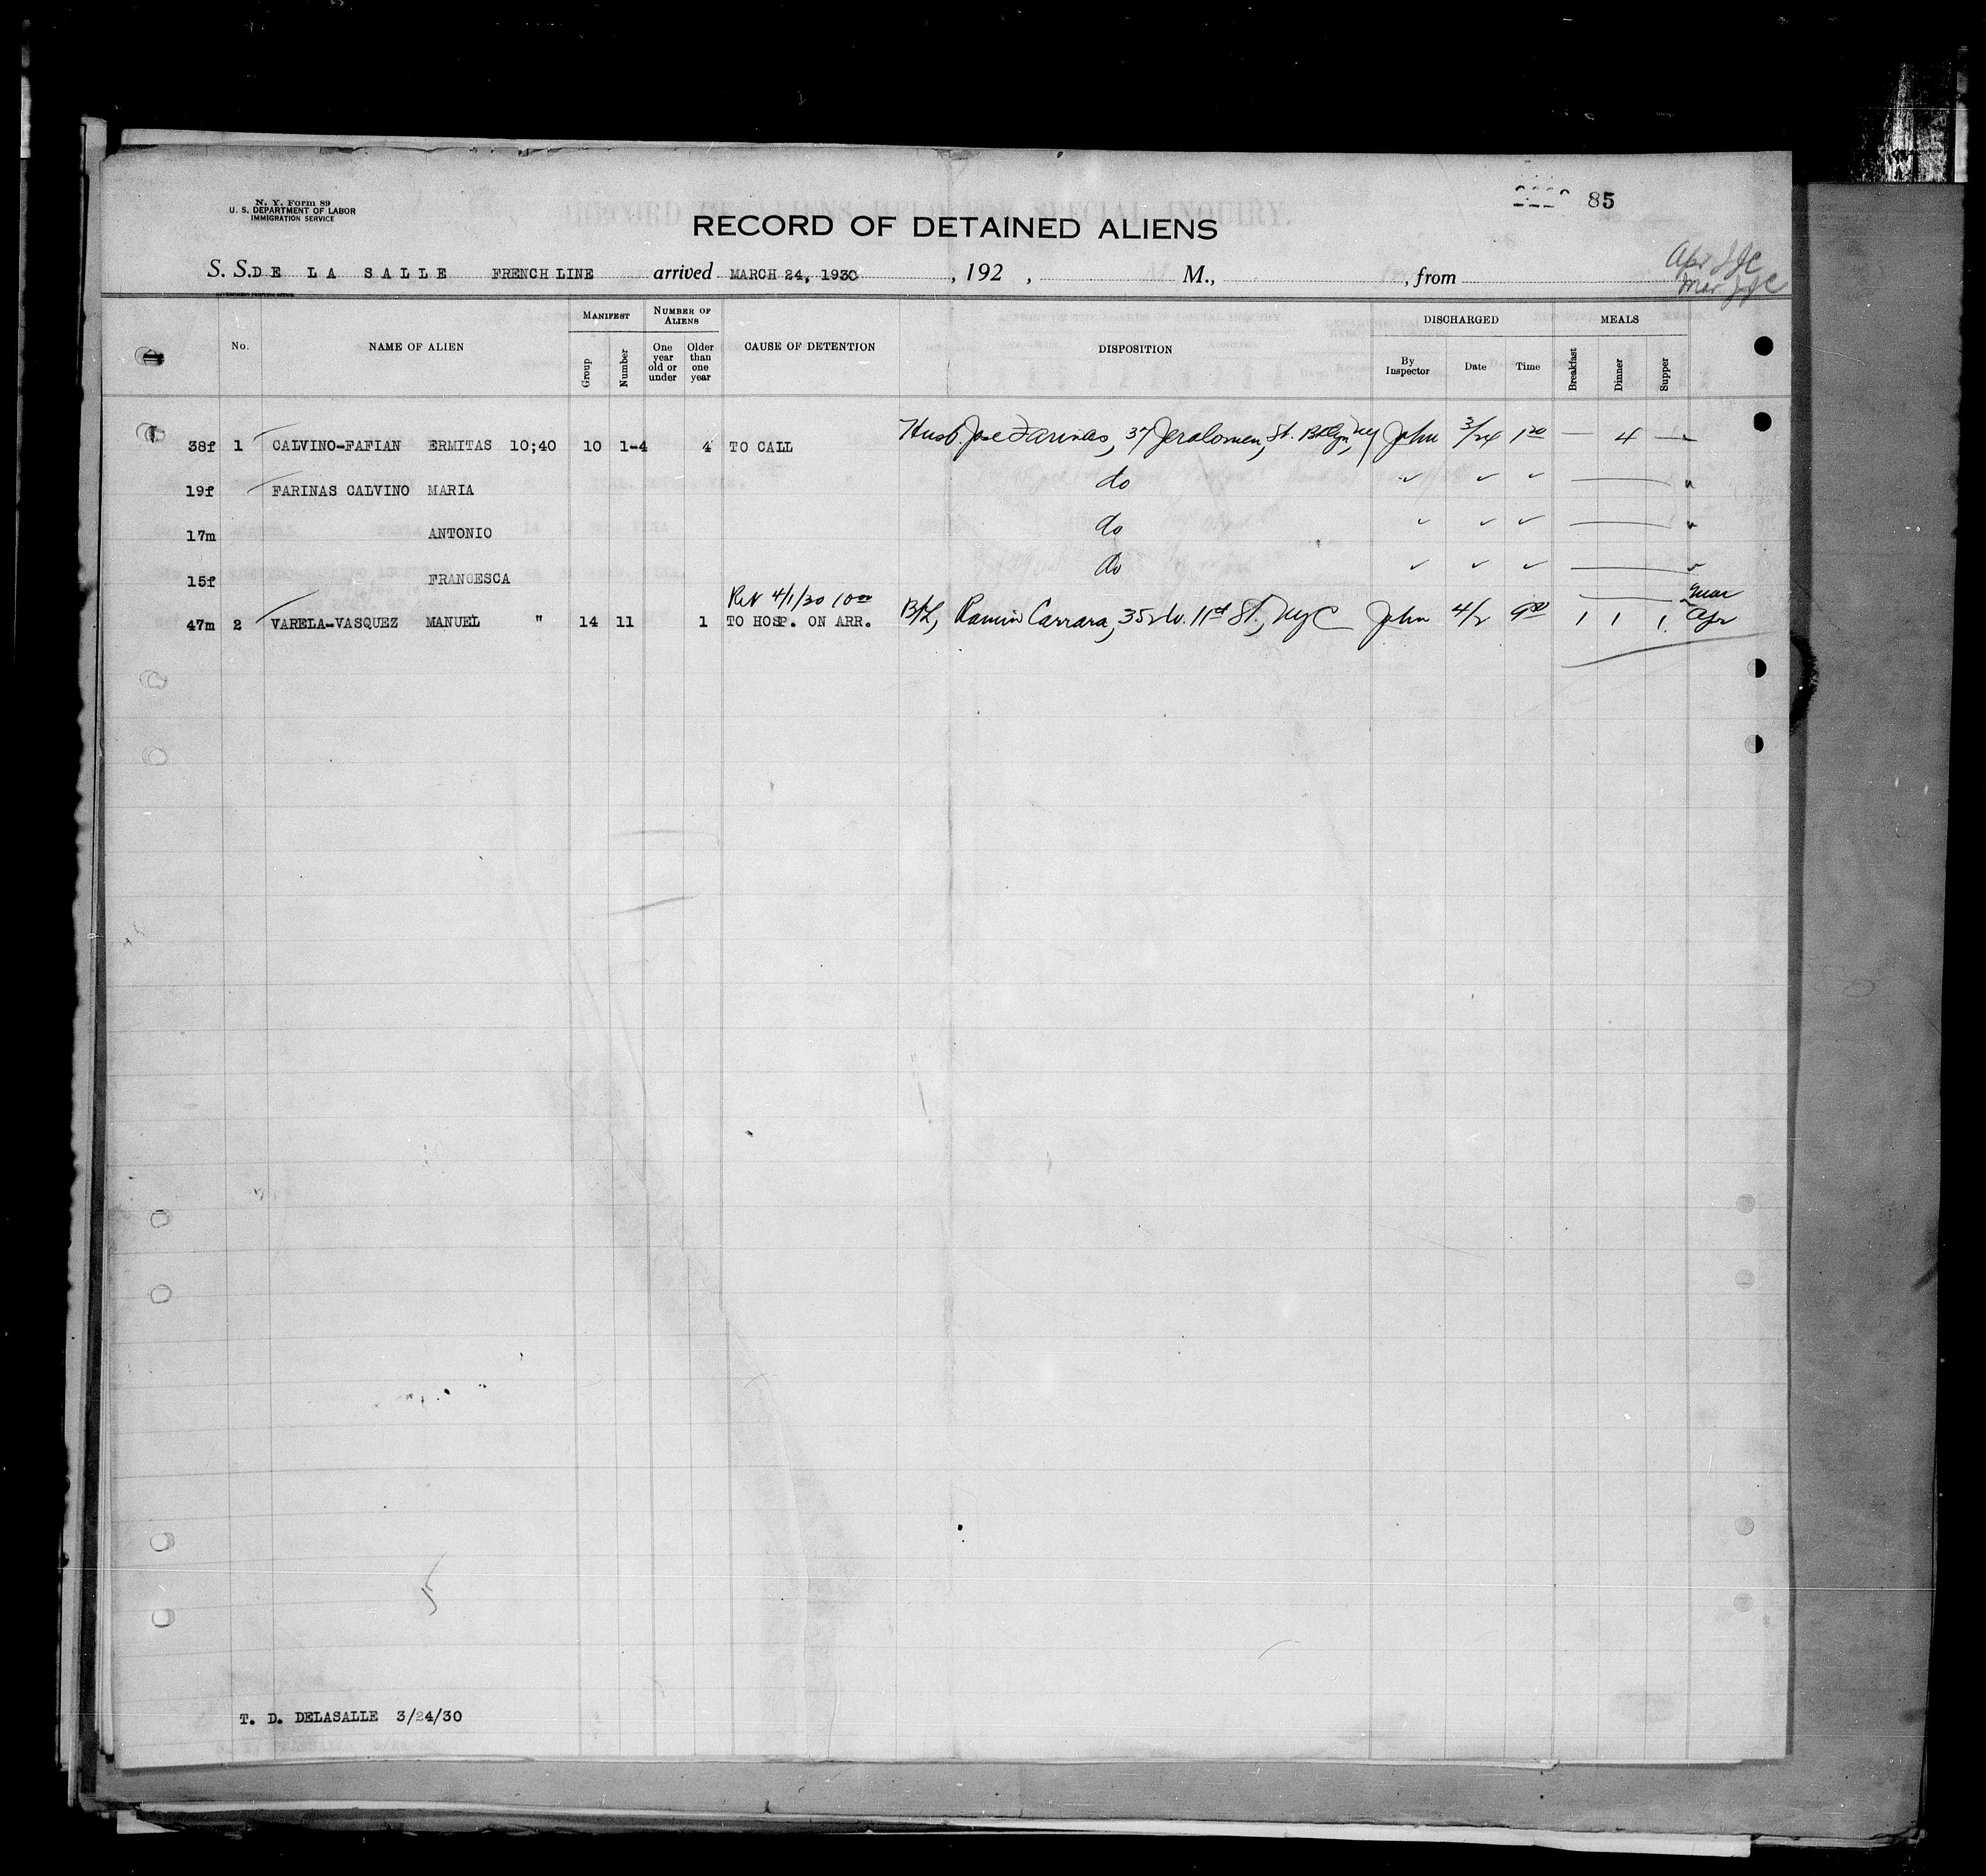 N. Y. Form 89
U. S. DEPARTMENT OF LABOR
IMMIGRATION SERVICE
85
RECORD OF DETAINED ALIENS
S. S. DE LA SALLE FRENCH LINE arrived MARCH 24, 1930 , 192 , M., , from
MANIFEST NUMBER OF ALIENS DISCHARGED MEALS
No. NAME OF ALIEN Group Number One year old or under Older than one year CAUSE OF DETENTION DISPOSITION By Inspector Date Time Breakfast Dinner Supper
38f 1 CALVINO-FAFIAN ERMITAS 10;40 10 1-4 4 TO CALL Husb. Jose Farinas, 37 St. Bklyn, NY John 3/24 1 20 — 4 —
19f FARINAS CALVINO MARIA do ✓ ✓ ✓ —
17m ANTONIO do ✓ ✓ ✓ —
15f FRANCESCA do ✓ ✓ ✓ —
Rec 4/1/30 10 00 Mar
47m 2 VARELA-VASQUEZ MANUEL " 14 11 1 TO HOSP. ON ARR. Carrara, 352 W. 11th St., NYC John 4/2 9 1 1 1 Apr
T. D. DELASALLE 3/24/30